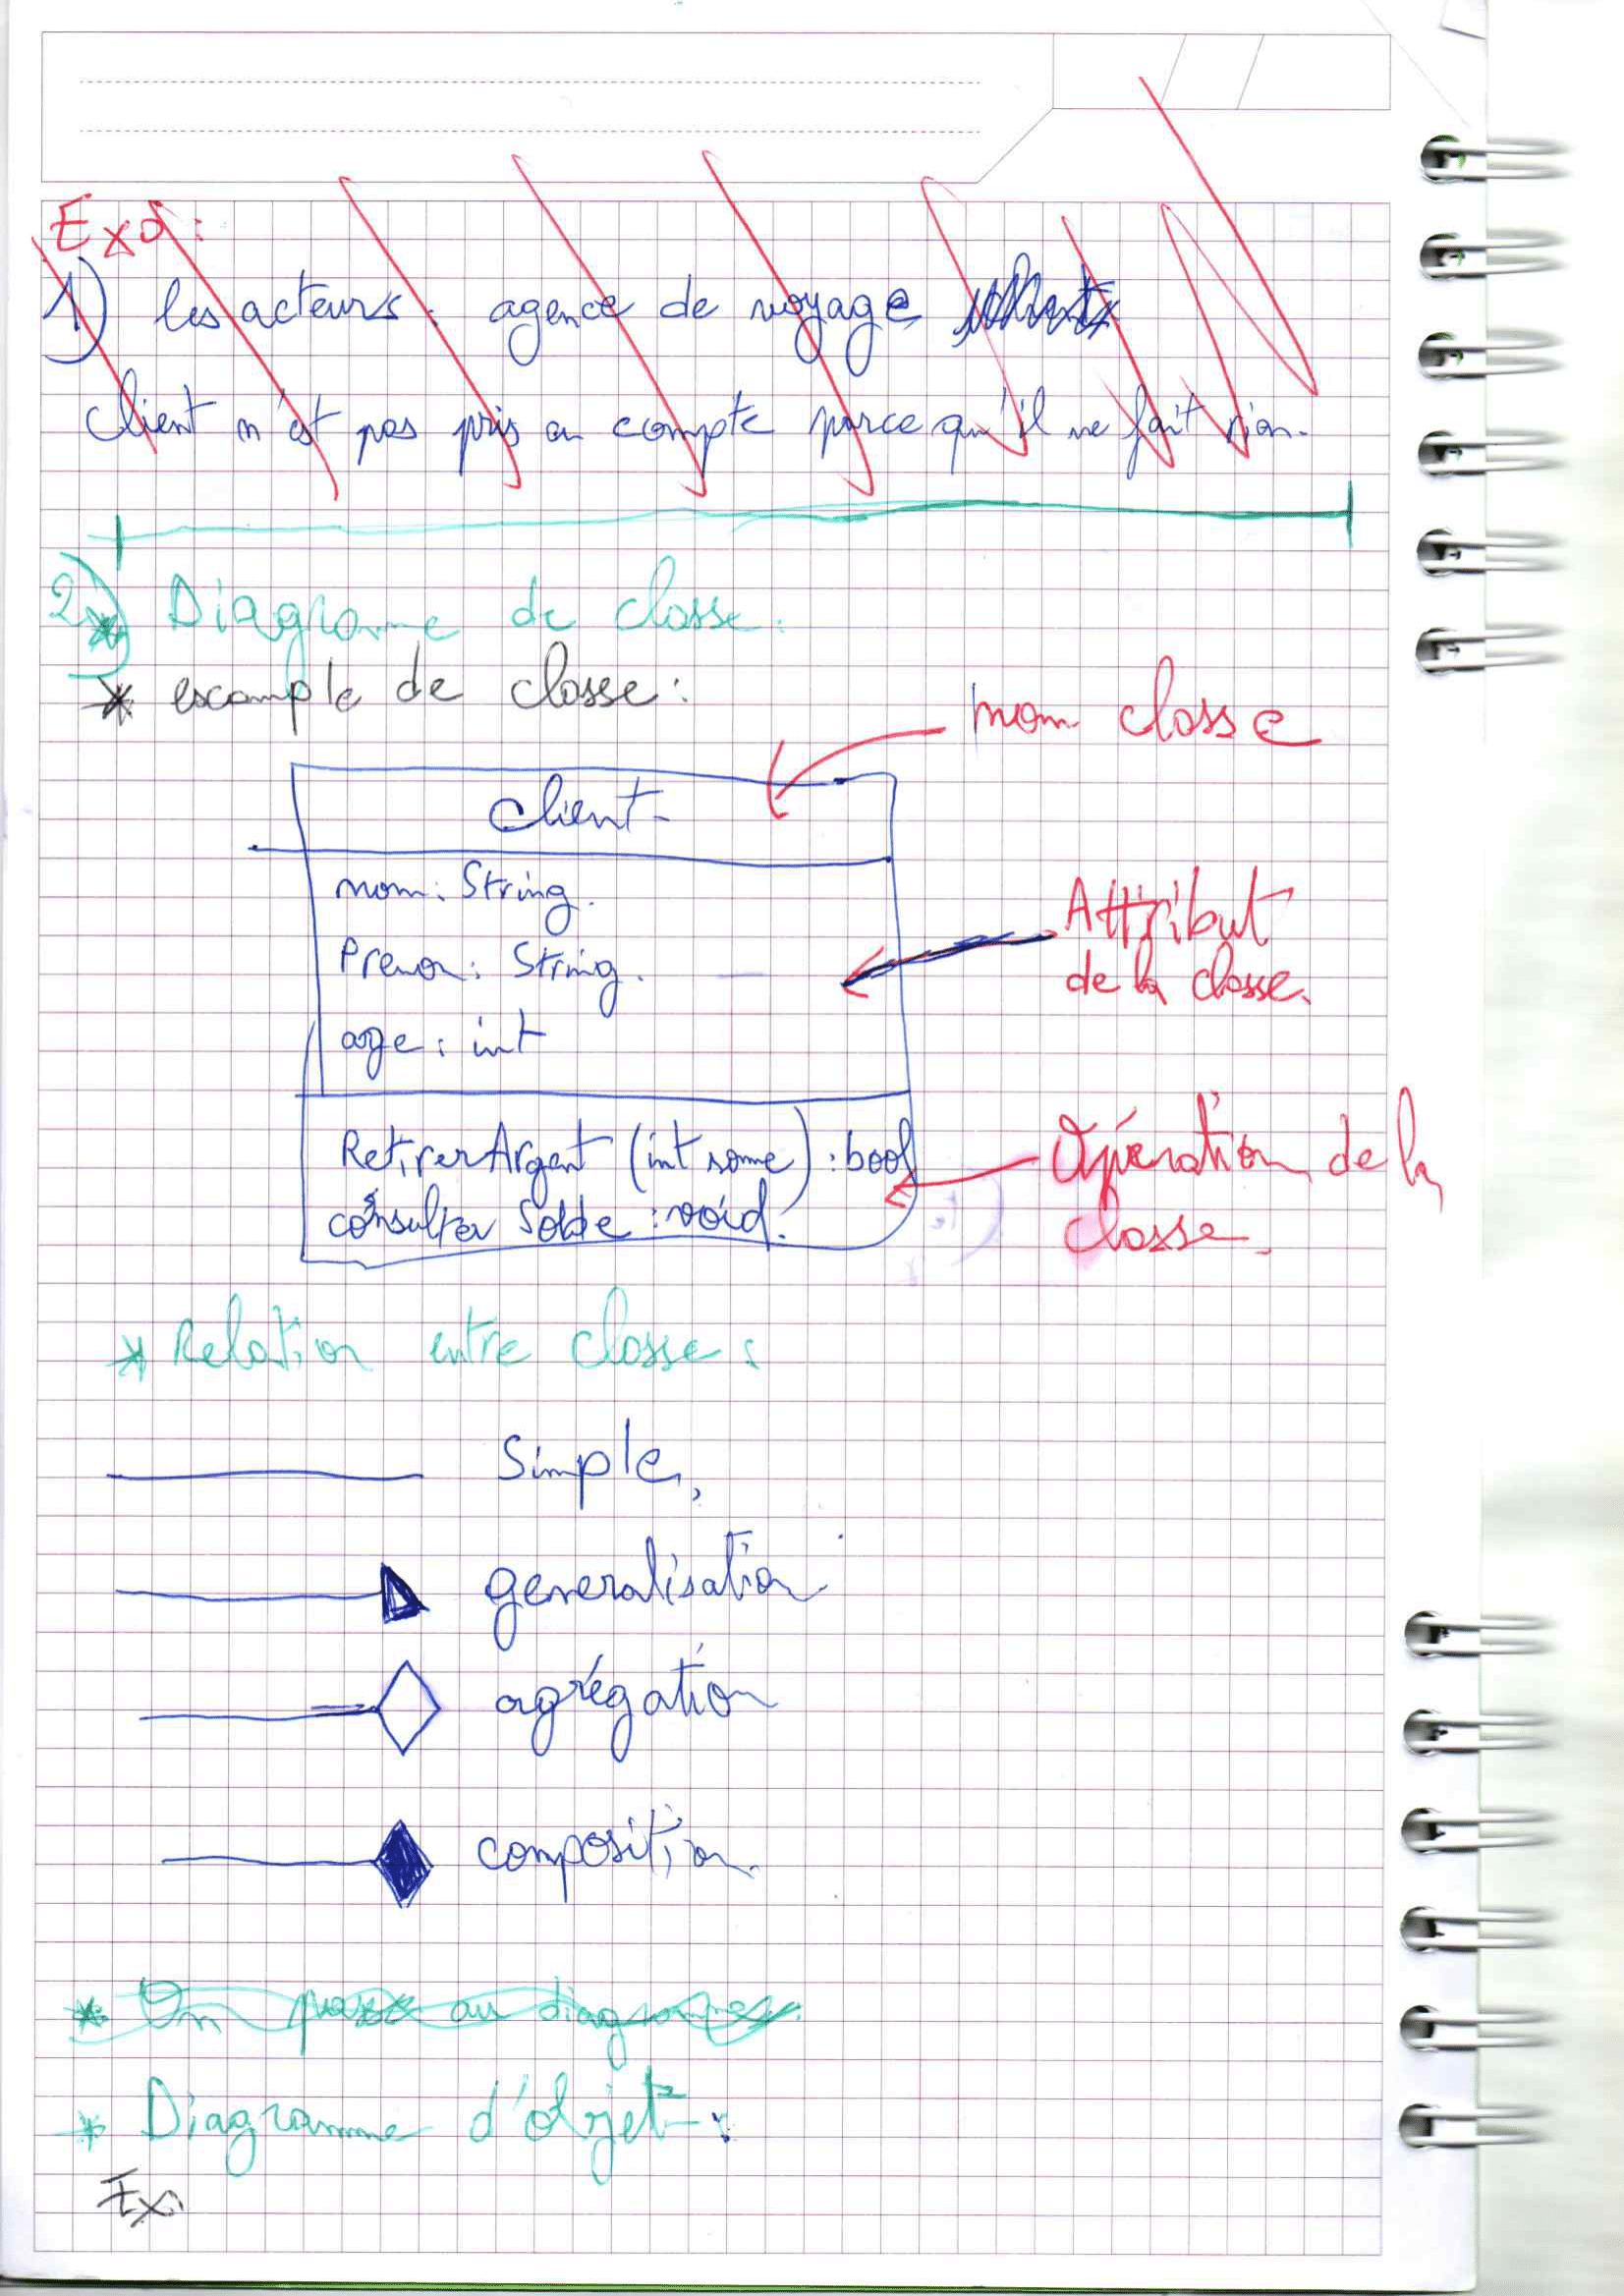 Exo:
1) les acteurs : agence de voyage
client n'est pas pris en compte parce qu'il ne fait rien.
2) Diagramme de classe:
* escample de classe:
nom classe
Client
nom: String.
Prenon: String.
Attribut
de la classe.
age: int
RetirerArgent (int some) : bool
consulter Solde : void.
Opération de la
classe.
* Relation entre classe:
Simple,
generalisation
agrégation
composition.
* On passe au diagramme
* Diagramme d'objet:
Ex: